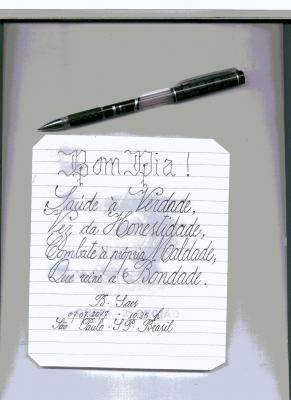 Bom Dia!
Saúde à Verdade,
Vez da Honestidade,
Combate à própria Maldade,
Que reine a Bondade.
B. Saes
São Paulo - SP. Brasil